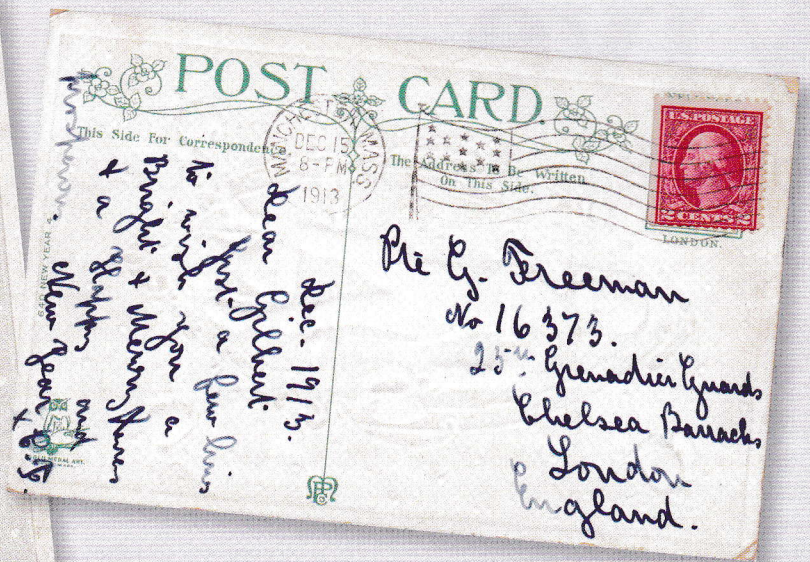 POST CARD.
This Side For Correspondence.
The Address To Be Written
On This Side.
MANCHESTER MASS.
DEC 15
8-PM
1913
U.S. POSTAGE
2 CENTS 2
LONDON.
Dec. 1913.
Dear Gilbert
Just a few lines
to wish you a
Bright & Merry Xmas
& a Happy and
New Year
Pte G. Freeman
No 16373.
Grenadier Guards
Chelsea Barracks
London
England.
640 NEW YEAR S.